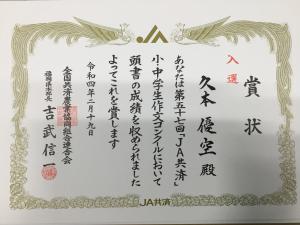 賞状
入選
久本優空殿
あなたは第五十七回「JA共済」
小・中学生作文コンクールにおいて
頭書の成績を収められました
よってこれを賞します
令和四年二月十九日
全国共済農業協同組合連合会
福岡県本部長
吉武信一
JA共済